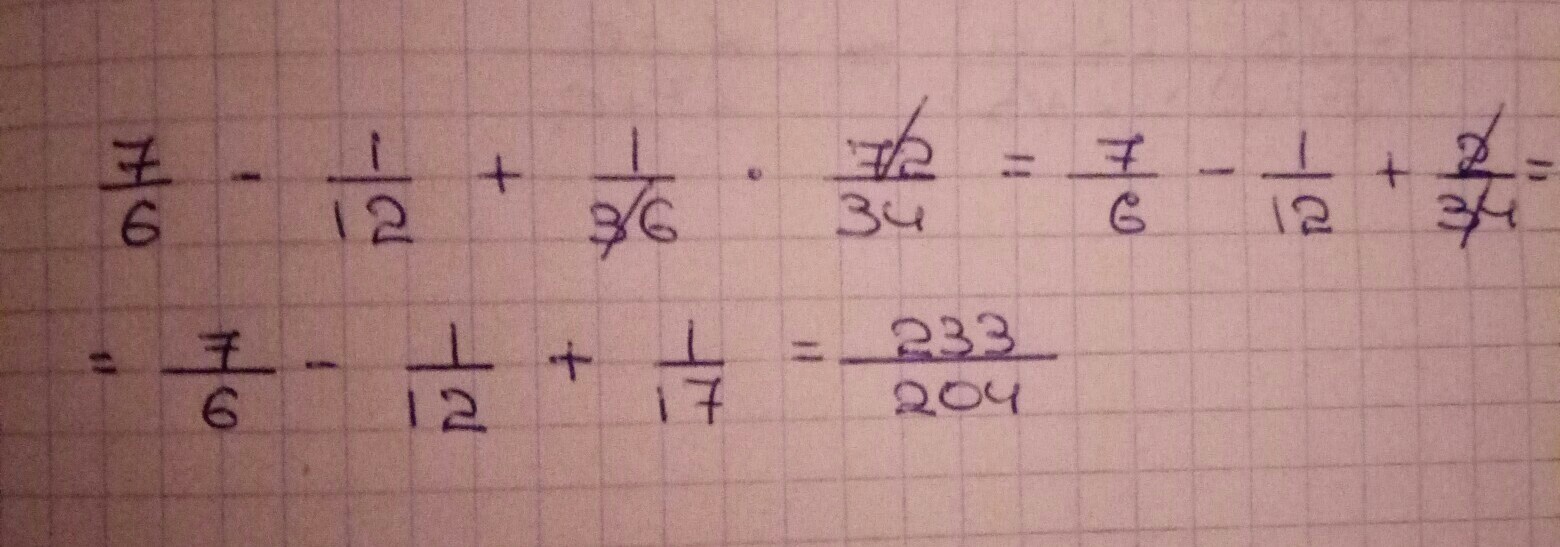 7/6 - 1/12 + 1/36 · 72/34 = 7/6 - 1/12 + 2/34 =
= 7/6 - 1/12 + 1/17 = 233/204